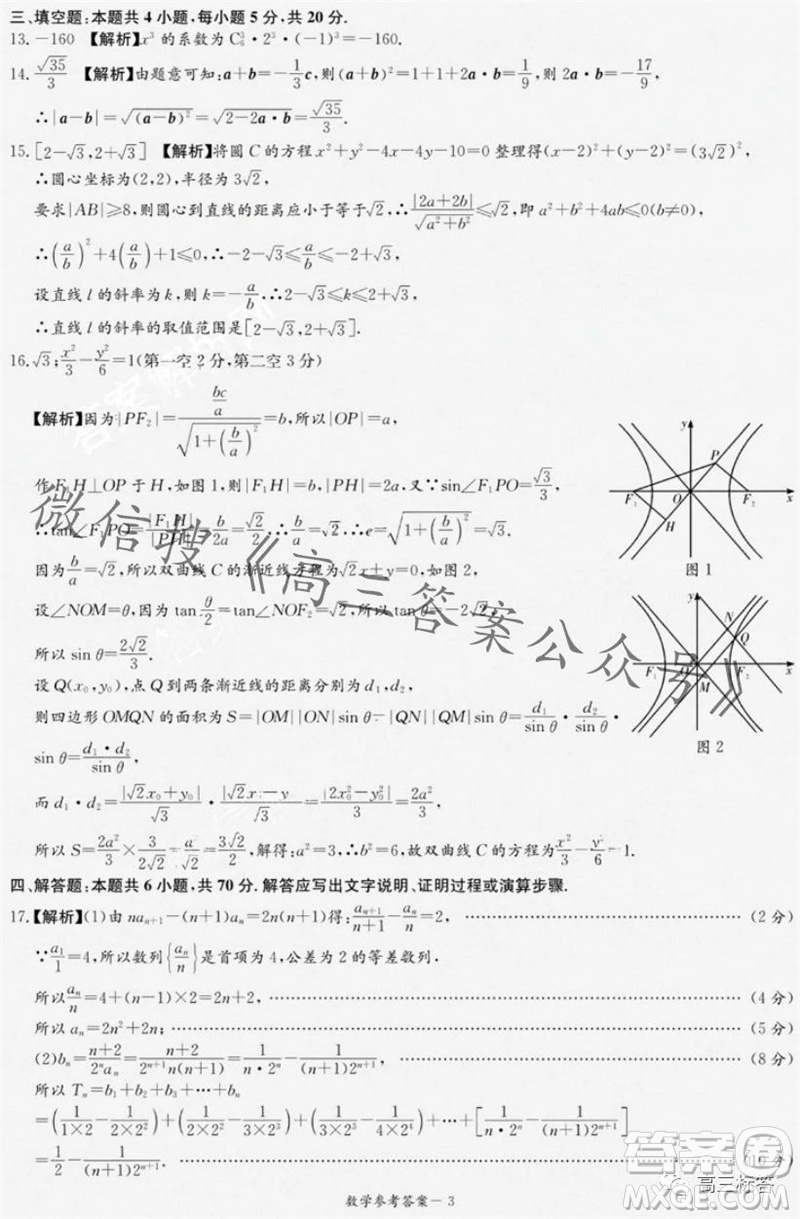 三、填空题:本题共 4 小题,每小题 5 分,共 20 分.
13. -160 【解析】x³ 的系数为 C₆³·2³·(-1)³=-160.
14. √35/3 【解析】由题意可知:a+b=-1/3 c,则(a+b)²=1+1+2a·b=1/9,则 2a·b=-17/9,
∴|a-b|=√(a-b)²=√(2-2a·b)=√35/3.
15. [2-√3,2+√3] 【解析】将圆 C 的方程 x²+y²-4x-4y-10=0 整理得(x-2)²+(y-2)²=(3√2)²,
∴圆心坐标为(2,2),半径为 3√2,
要求|AB|≥8,则圆心到直线的距离应小于等于√2,∴|2a+2b|/√(a²+b²)≤√2,即 a²+b²+4ab≤0(b≠0),
∴(a/b)²+4(a/b)+1≤0,∴-2-√3≤a/b≤-2+√3,
设直线 l 的斜率为 k,则 k=-a/b,∴2-√3≤k≤2+√3,
∴直线 l 的斜率的取值范围是[2-√3,2+√3].
16. √3;x²/3-y²/6=1(第一空 2 分,第二空 3 分)
【解析】因为|PF₂|=(bc/a)/√(1+(b/a)²)=b,所以|OP|=a,
作 F₁H⊥OP 于 H,如图 1,则|F₁H|=b,|PH|=2a,又∵sin∠F₁PO=√3/3,
∴tan∠F₁PO=|F₁H|/|PH|=b/2a=√2/2,∴b/a=√2.∴e=√(1+(b/a)²)=√3.
因为b/a=√2,所以双曲线 C 的渐近线方程为√2x±y=0,如图 2,
设∠NOM=θ,因为 tan θ/2=tan∠NOF₂=√2,所以 tan θ=-2√2,
所以 sin θ=2√2/3.
设 Q(x₀,y₀),点 Q 到两条渐近线的距离分别为 d₁,d₂,
则四边形 OMQN 的面积为 S=|OM||ON|sin θ=|QN||QM|sin θ=d₁/sin θ·d₂/sin θ·
sin θ=d₁·d₂/sin θ,
而 d₁·d₂=|√2x₀+y₀|/√3·|√2x₀-y₀|/√3=|2x₀²-y₀²|/3=2a²/3,
所以 S=2a²/3×3/2√2=3√2/2,解得:a²=3,∴b²=6,故双曲线 C 的方程为x²/3-y²/6=1.
y
P
F₁
O
F₂
x
H
图 1
y
N
Q
F₁
O
F₂
x
M
图 2
四、解答题:本题共 6 小题,共 70 分.解答应写出文字说明、证明过程或演算步骤.
17.【解析】(1)由 naₙ₊₁-(n+1)aₙ=2n(n+1)得:aₙ₊₁/(n+1)-aₙ/n=2, (2 分)
∵a₁/1=4,所以数列{aₙ/n}是首项为 4,公差为 2 的等差数列.
所以aₙ/n=4+(n-1)×2=2n+2, (4 分)
所以 aₙ=2n²+2n; (5 分)
(2)bₙ=(n+2)/(2ⁿaₙ)=(n+2)/(2ⁿ⁺¹n(n+1))=1/(n·2ⁿ)-1/((n+1)2ⁿ⁺¹), (8 分)
所以 Tₙ=b₁+b₂+b₃+⋯+bₙ
=(1/(1×2)-1/(2×2²))+(1/(2×2²)-1/(3×2³))+(1/(3×2³)-1/(4×2⁴))+⋯+[1/(n·2ⁿ)-1/((n+1)2ⁿ⁺¹)]
=1/2-1/((n+1)2ⁿ⁺¹). (10 分)
数学参考答案- 3
微信搜《高三答案公众号》
高三标答
答案圈
MXQE.COM